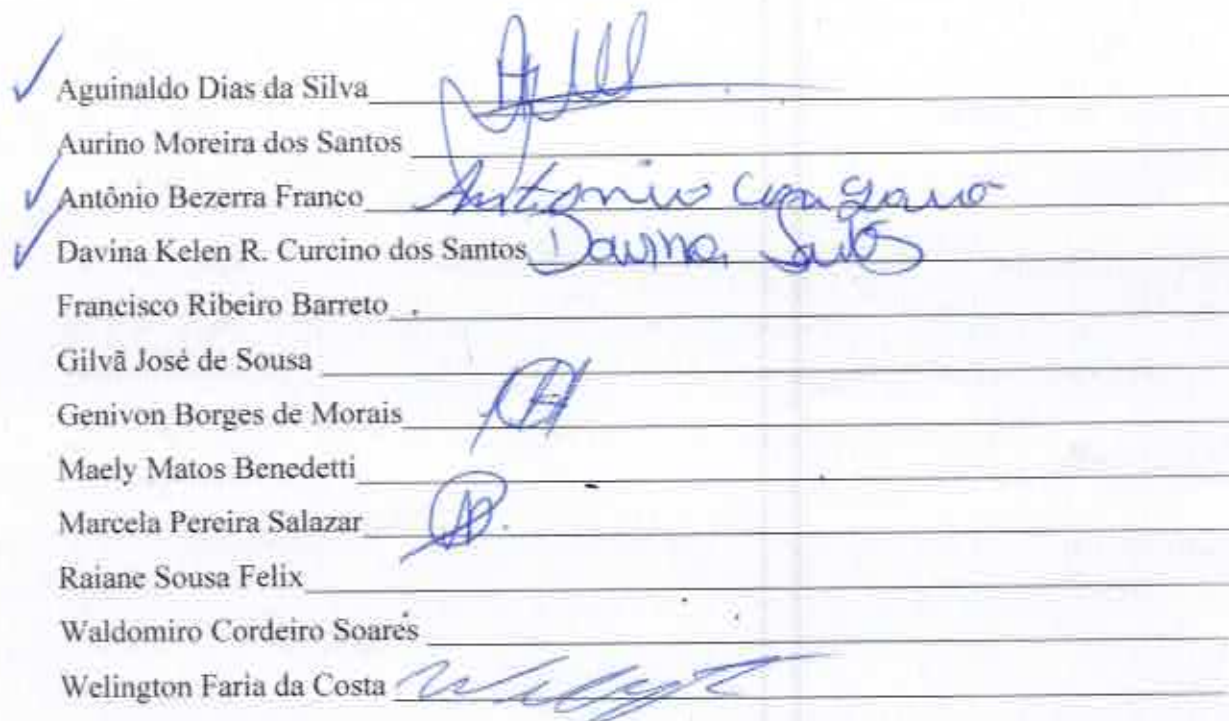 Aguinaldo Dias da Silva
Aurino Moreira dos Santos
Antônio Bezerra Franco Antonio
Davina Kelen R. Curcino dos Santos Davina
Francisco Ribeiro Barreto
Gilvã José de Sousa
Genivon Borges de Morais
Maely Matos Benedetti
Marcela Pereira Salazar
Raiane Sousa Felix
Waldomiro Cordeiro Soares
Welington Faria da Costa